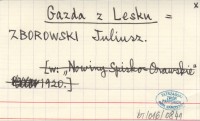 x
Gazda z Lesku =
ZBOROWSKI Juliusz.
[w: „Nowiny Spiskor Orawskie"
1920.]